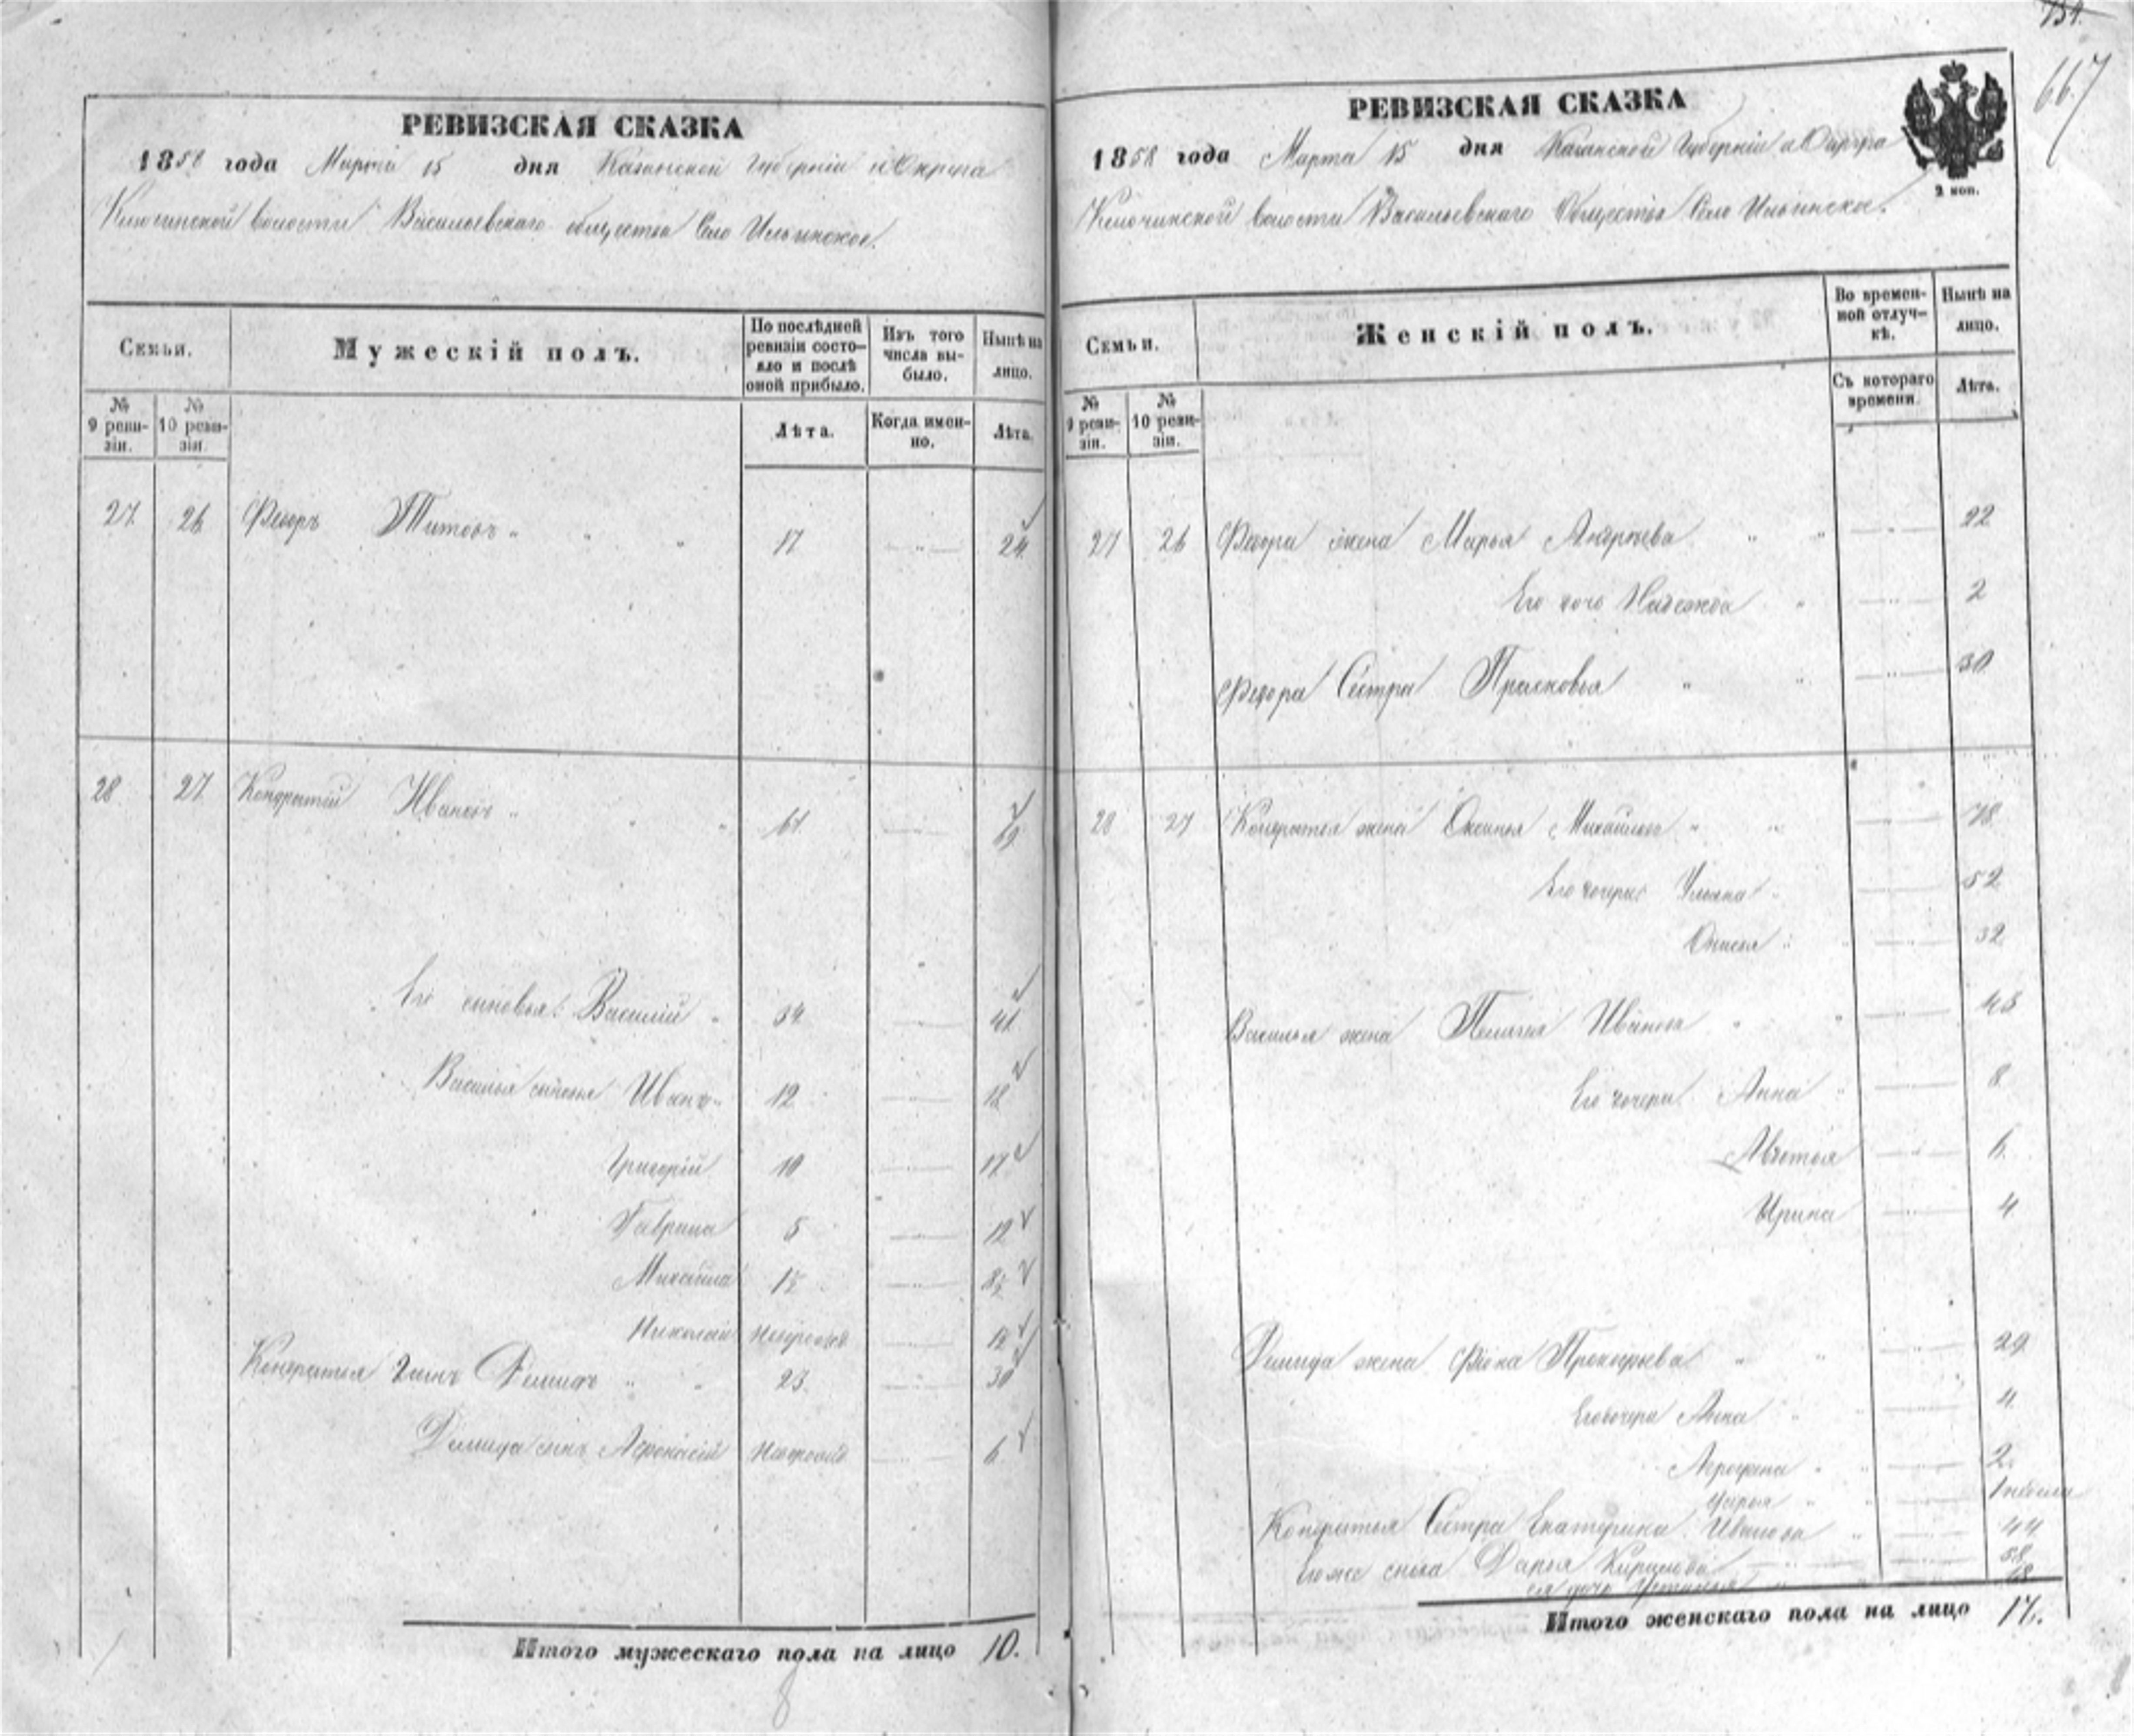 РЕВИЗСКАЯ СКАЗКА
1858 года Марта 15 дня Казанской Губерніи и Округа
Ключинской волости Васильевскаго общества Село Ильинское.
Семьи.
Мужескій полъ.
По послѣдней ревизіи состояло и послѣ оной прибыло.
Изъ того числа выбыло.
Нынѣ на лицо.
№ 9 ревизіи.
№ 10 ревизіи.
Лѣта.
Когда именно.
Лѣта.
27 26 Федоръ Титовъ 17 24
28 27 Кондратій Ивановъ 61 69
Его сыновья: Василій 34 41
Василья сыновья Иванъ 12 18
Григорій 10 17
Гаврила 5 12
Михайла 1½ 8½
Николай 12
Кондратья 2 сынъ Демидъ 23 30
Демида сынъ Афонасій 6
Итого мужескаго пола на лицо 10.
734
667
РЕВИЗСКАЯ СКАЗКА
2 коп.
1858 года Марта 15 дня Казанской Губерніи и Округа
Ключинской волости Васильевскаго Общества Село Ильинское.
Семьи.
Женскій полъ.
Во временной отлучкѣ.
Нынѣ на лицо.
№ 9 ревизіи.
№ 10 ревизіи.
Съ котораго времени.
Лѣта.
27 26 Федора жена Марья Андреева 22
Его дочь Надежда 2
Федора Сестра Прасковья 30
28 27 Кондратья жена Оксинья Михайлова 78
Его дочери: Ульяна 52
Онисья 32
Василья жена Пелагея Иванова 45
Его дочери Анна 8
Авдотья 6
Ирина 4
Демида жена Фіона Прокофьева 29
Его дочери Анна 4
Агрофена 2
Дарья 1 недели
Кондратья Сестра Екатерина Иванова 44
Его же сноха Дарья Кирилова 58
ея дочь Устинья 18
Итого женскаго пола на лицо 17.